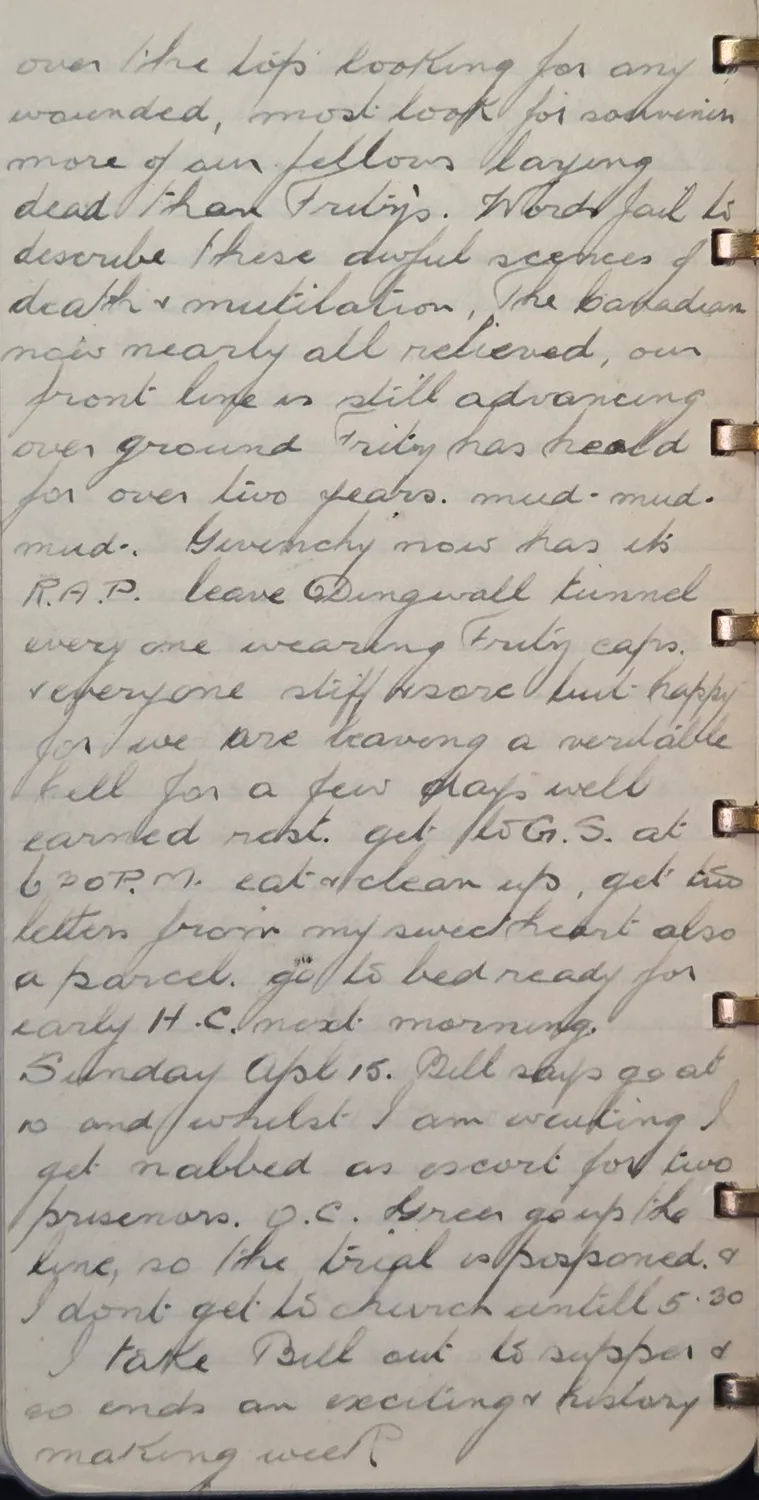 over the top looking for any
wounded, most look for souvenirs
more of our fellows laying
dead than Frity's. Words fail to
describe these awful scences of
death & mutilation, The Canadian
now nearly all relieved, our
front line is still advancing
over ground Frity has heald
for over two years. mud-mud-
mud-. Givenchy now has its
R.A.P. leave Dingwall tunnel
every one wearing Frity caps.
& everyone stiff & sore but happy
for we are leaving a veritable
hell for a few days well
earned rest. get to G.S. at
6 30 P.M. eat & clean up, get two
letters from my sweetheart also
a parcel. go to bed ready for
early H.C. next morning.
Sunday Apl 15. Bill says go at
10 and whilst I am waiting I
get nabbed as escort for two
prisenors. O.C. Green go up the
line, so the trial is posponed. &
I dont get to church untill 5.30
I take Bill out to supper &
so ends an exciting & history
making week